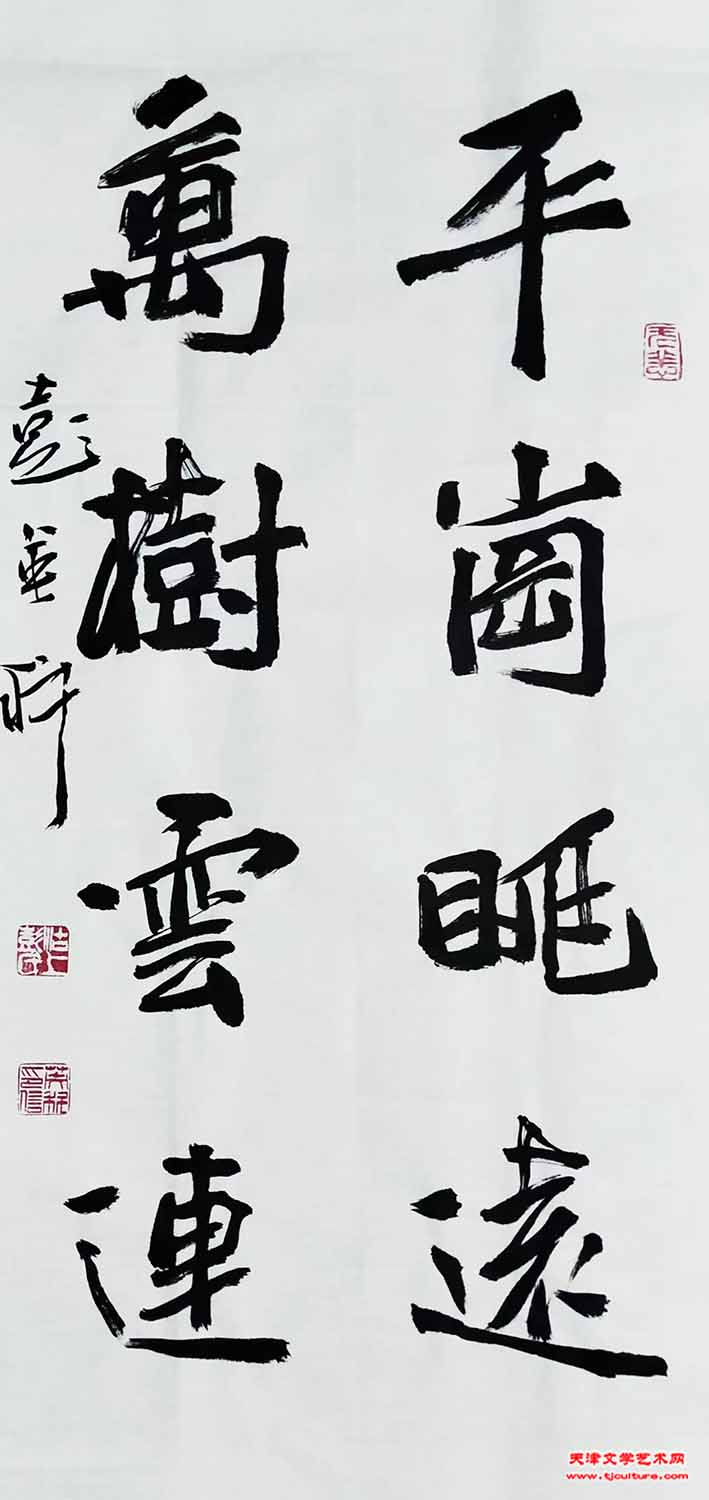 平崗眺遠
萬樹雲連
彭英科
英科印信
天津文学艺术网
www.tjculture.com